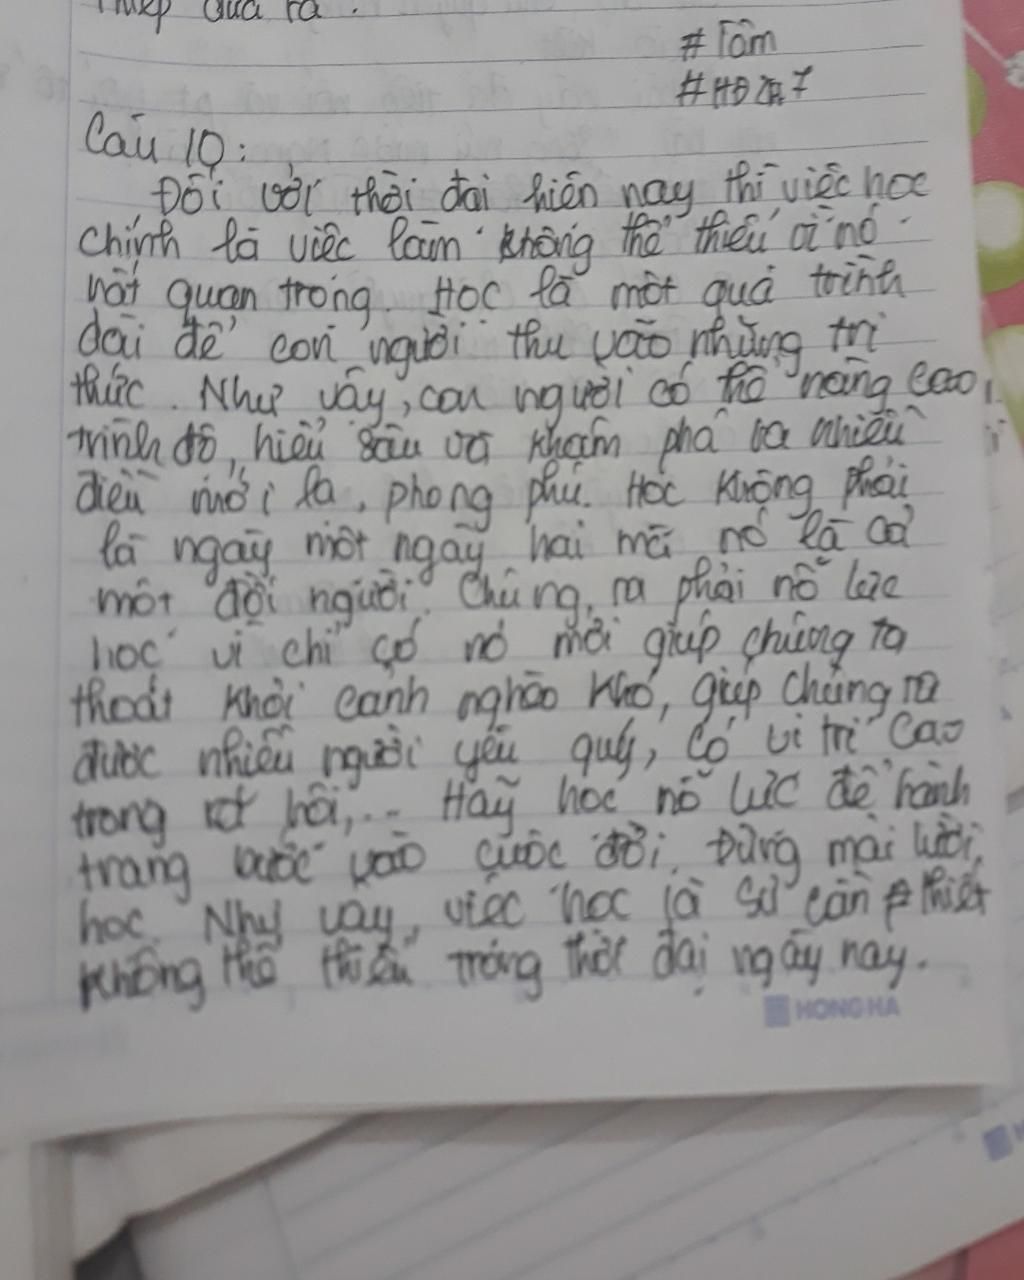 Thiếp đưa ra.
#Tâm
#HĐ247
Câu 10:
Đối với thời đại hiện nay thì việc học
chính là việc làm không thể thiếu vì nó
rất quan trọng. Học là một quá trình
dài để con người thu vào những tri
thức. Như vậy, con người có thể nâng cao
trình độ, hiểu sâu và khám phá ra nhiều
điều mới lạ, phong phú. Học không phải
là ngày một ngày hai mà nó là cả
một đời người. Chúng ta phải nỗ lực
học vì chỉ có nó mới giúp chúng ta
thoát khỏi cảnh nghèo khó, giúp chúng ta
được nhiều người yêu quý, có vị trí cao
trong xã hội,... Hãy học nỗ lực để hành
trang bước vào cuộc đời. Đừng mải lười
học. Như vậy, việc học là sự cần thiết
không thể thiếu trong thời đại ngày nay.
HONG HA